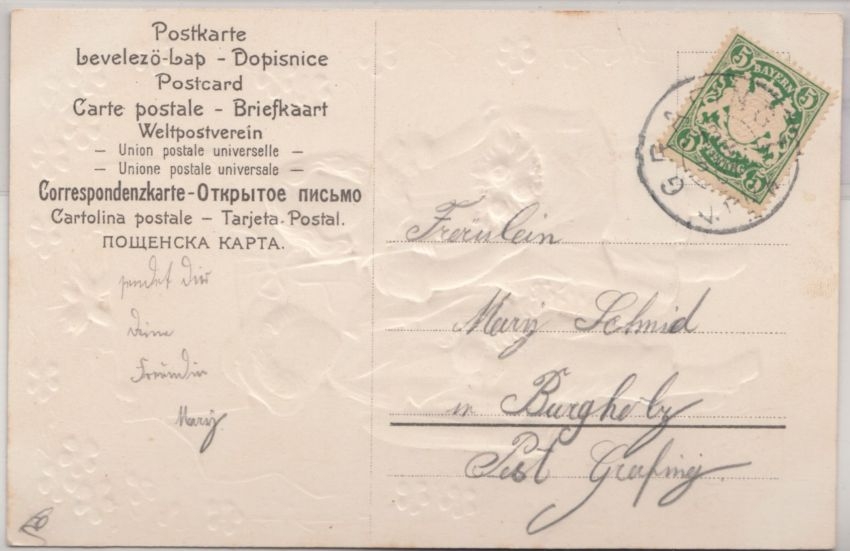 Postkarte
Levelező-Lap - Dopisnice
Postcard
Carte postale - Briefkaart
Weltpostverein
— Union postale universelle —
— Unione postale universale —
Correspondenzkarte-Открытое письмо
Cartolina postale – Tarjeta Postal.
ПОЩЕНСКА КАРТА.
sendet dir
deine
Freundin
Mary.
5 BAYERN 5
5 PFENNIG 5
Fräulein
Mary Schmid
in Burgholz
Post Grafing